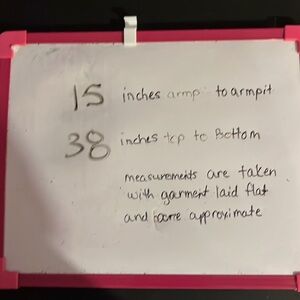 15 inches armp to armpit
38 inches top to Bottom
measurements are taken
with garment laid flat
and approximate